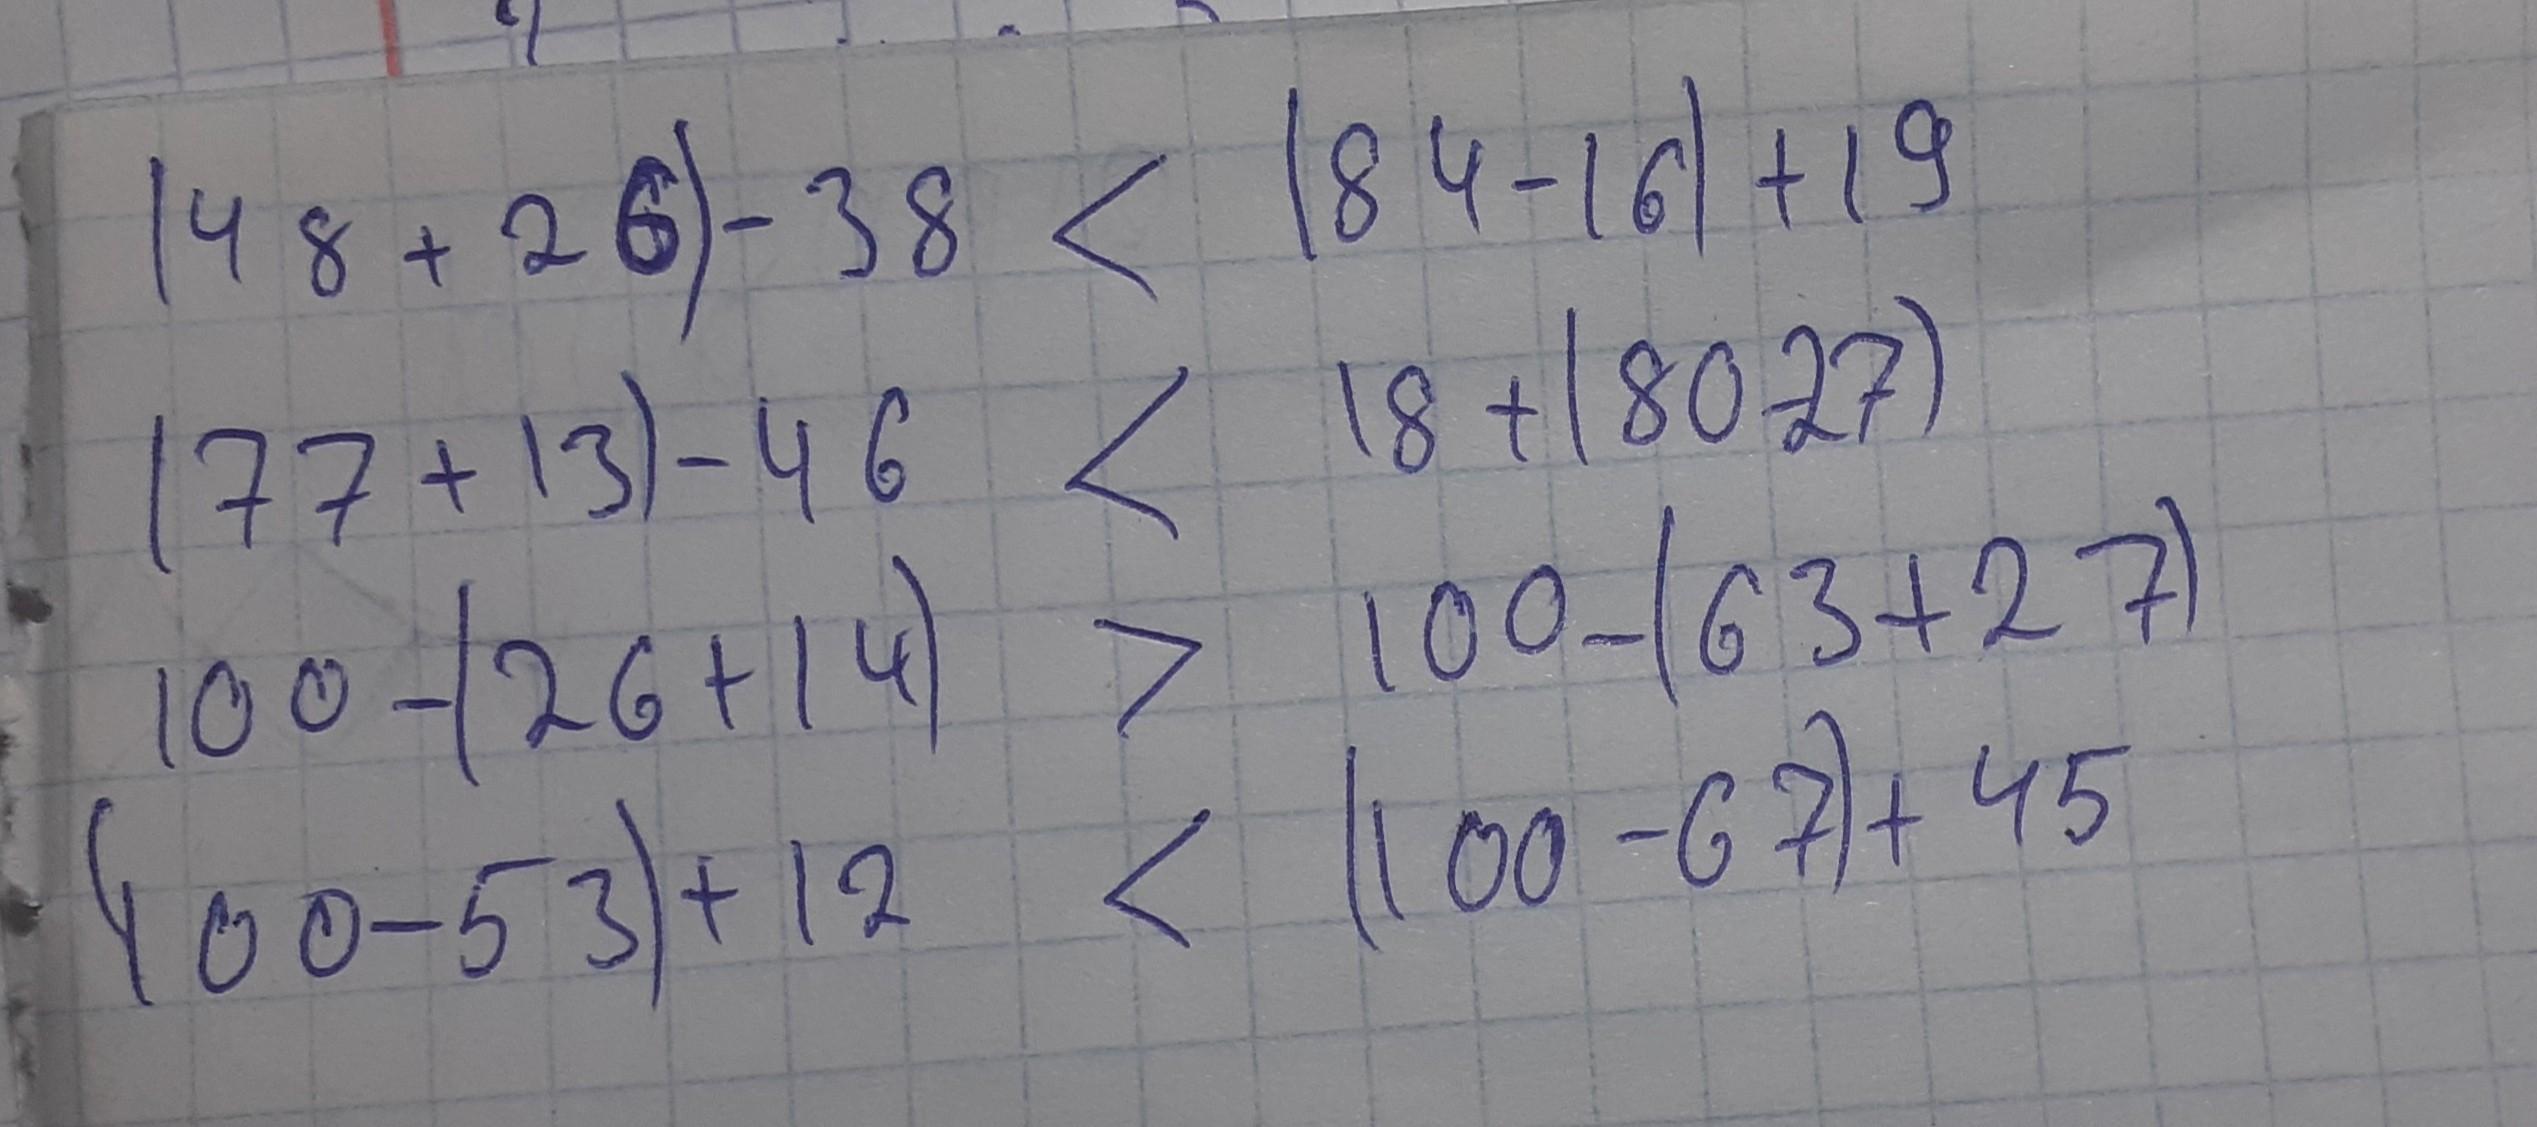 (48+26)-38 < (84-16)+19
(77+13)-46 < 18+(8027)
100-(26+14) > 100-(63+27)
(100-53)+12 < (100-67)+45